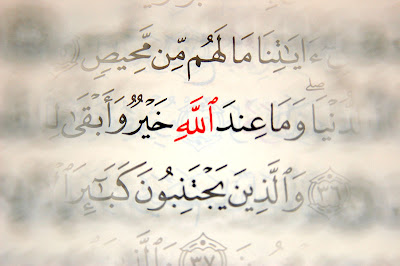 ءَايَٰتِنَا مَا لَهُم مِّن مَّحِيصٍ
ٱلدُّنْيَا ۖ وَمَا عِندَ ٱللَّهِ خَيْرٌ وَأَبْقَىٰ لِ
وَٱلَّذِينَ يَجْتَنِبُونَ كَبَٰٓئِرَ ٱ ٣٦
٣٧ وَٱلَّذِ